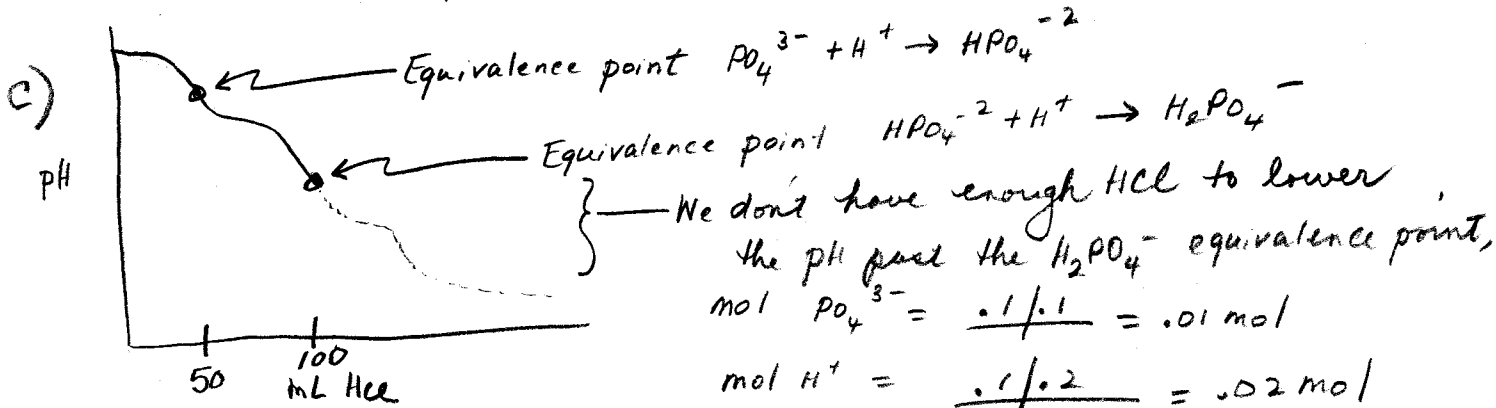 Equivalence point PO₄³⁻ + H⁺ → HPO₄⁻²
C)
Equivalence point HPO₄⁻² + H⁺ → H₂PO₄⁻
pH
We don't have enough HCl to lower
the pH past the H₂PO₄⁻ equivalence point,
mol PO₄³⁻ = .1/.1 = .01 mol
50 100
mL HCl
mol H⁺ = .1/.2 = .02 mol